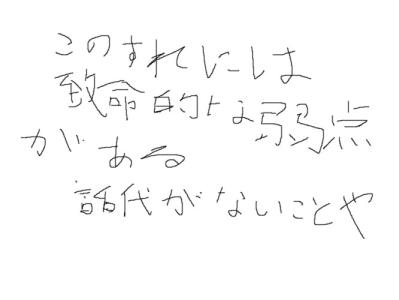 このすれにしは
致命的な弱点
がある
話代がないことや